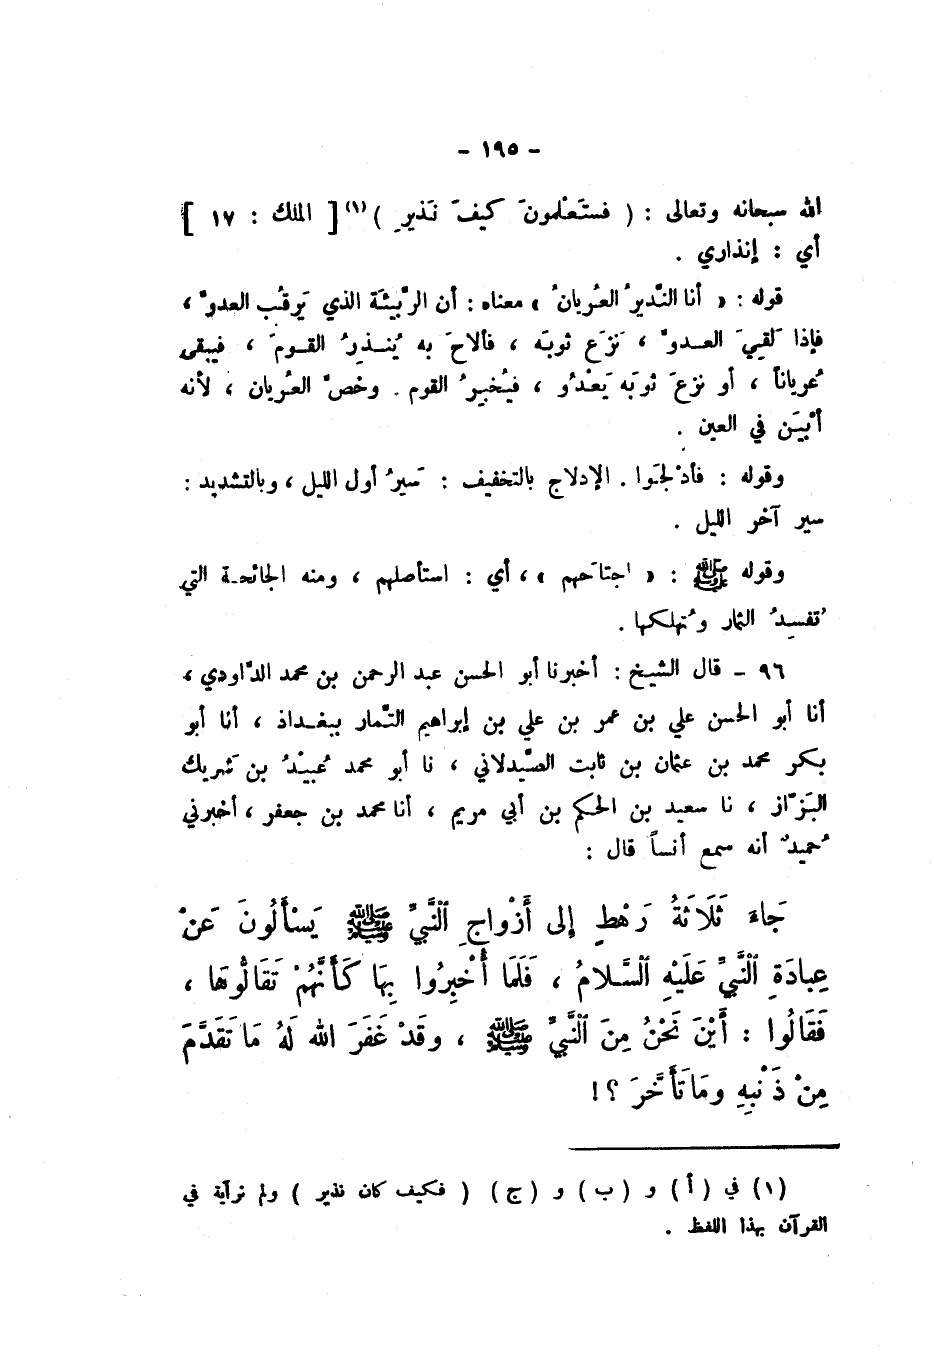 - ١٩٥ -
الله سبحانه وتعالى : ( فستَعْلمونَ كيفَ نَذيرِ )(١) [ الملك : ١٧ ]
أي : إنذاري .
قوله : « أنا النَّذيرُ العُريانُ » معناه : أن الرَّبيئَة الذي يَرقُب العدوَّ ،
فإذا لَقيَ العدوَّ ، نَزَع ثوبَه ، فألاحَ به يُنذِرُ القومَ ، فيبقى
عُرياناً ، أو نزعَ ثوبَه يَعْدُو ، فيُخبِرُ القوم . وخصَّ العُريان ، لأنه
أبيَن في العين .
وقوله : فأدْلجَوا . الإدلاج بالتخفيف : سَيرُ أول الليل ، وبالتشديد :
سير آخر الليل .
وقوله ﷺ : « اجتاحَهم » ، أي : استأصلهم ، ومنه الجائحة التي
تُفسِدُ الثمار وتُهلكها .
٩٦ - قال الشيخ : أخبرنا أبو الحسن عبد الرحمن بن محمد الدَّاودي ،
أنا أبو الحسن علي بن عمر بن علي بن إبراهيم التَّمار ببغداذ ، أنا أبو
بكر محمد بن عثمان بن ثابت الصَّيدلاني ، نا أبو محمد عُبيْدُ بن شَريك
البَزَّاز ، نا سعيد بن الحكم بن أبي مريم ، أنا محمد بن جعفر ، أخبرني
حُميدٌ أنه سمع أنساً قال :
جَاءَ ثَلَاثَةُ رَهْطٍ إلى أَزْوَاجِ ٱلنَّبيِّ ﷺ يَسْأَلُونَ عَنْ
عِبادَةِ ٱلنَّبيِّ عَلَيْهِ ٱلسَّلامُ ، فَلَمَا أُخْبِرُوا بِهَا كَأَنَّهُمْ تَقَالُّوهَا ،
فَقَالُوا : أَيْنَ نَحْنُ مِنَ ٱلنَّبيِّ ﷺ ، وقَدْ غَفَرَ الله لَهُ مَا تَقَدَّمَ
مِنْ ذَنْبِهِ ومَا تَأَخَّرَ ؟!
(١) في ( أ ) و ( ب ) و ( ج ) ( فكيف كان نذير ) ولم نر آية في
القرآن بهذا اللفظ .